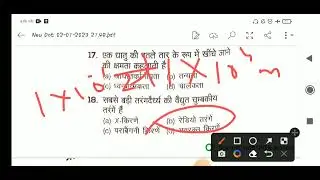 Neu Oct 02-01-2023 21:40.pdf
17. एक धातु की पतले तार के रूप में खींचे जाने
की क्षमता कहलाती है
(b) तन्यता
(d) चालकता
1 × 10 1 × 10 m
18. सबसे बड़ी तरंगदैर्घ्य की वैद्युत चुम्बकीय
तरंगें हैं
(a) X-किरणें (b) रेडियो तरंगें
(c) पराबैंगनी किरणें (d) अवरक्त किरणें